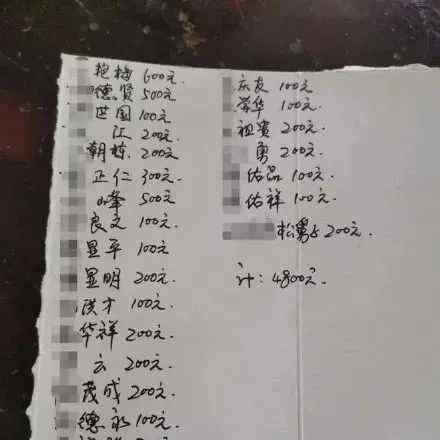 艳梅 600元
德贤 500元
世国 100元
江 200元.
朝栋. 200元
正仁 300元
小峰 500元
良文 100元.
显平 100元
显明 200元.
洪才 100元.
华祥 200元.
云 200元.
茂成 200元.
德永 100元.
庆友 100元
荣华 100元.
祖贵 200元.
勇 200元.
佑品 100元.
佑祥 100元.
松 200元.
计: 4800元.